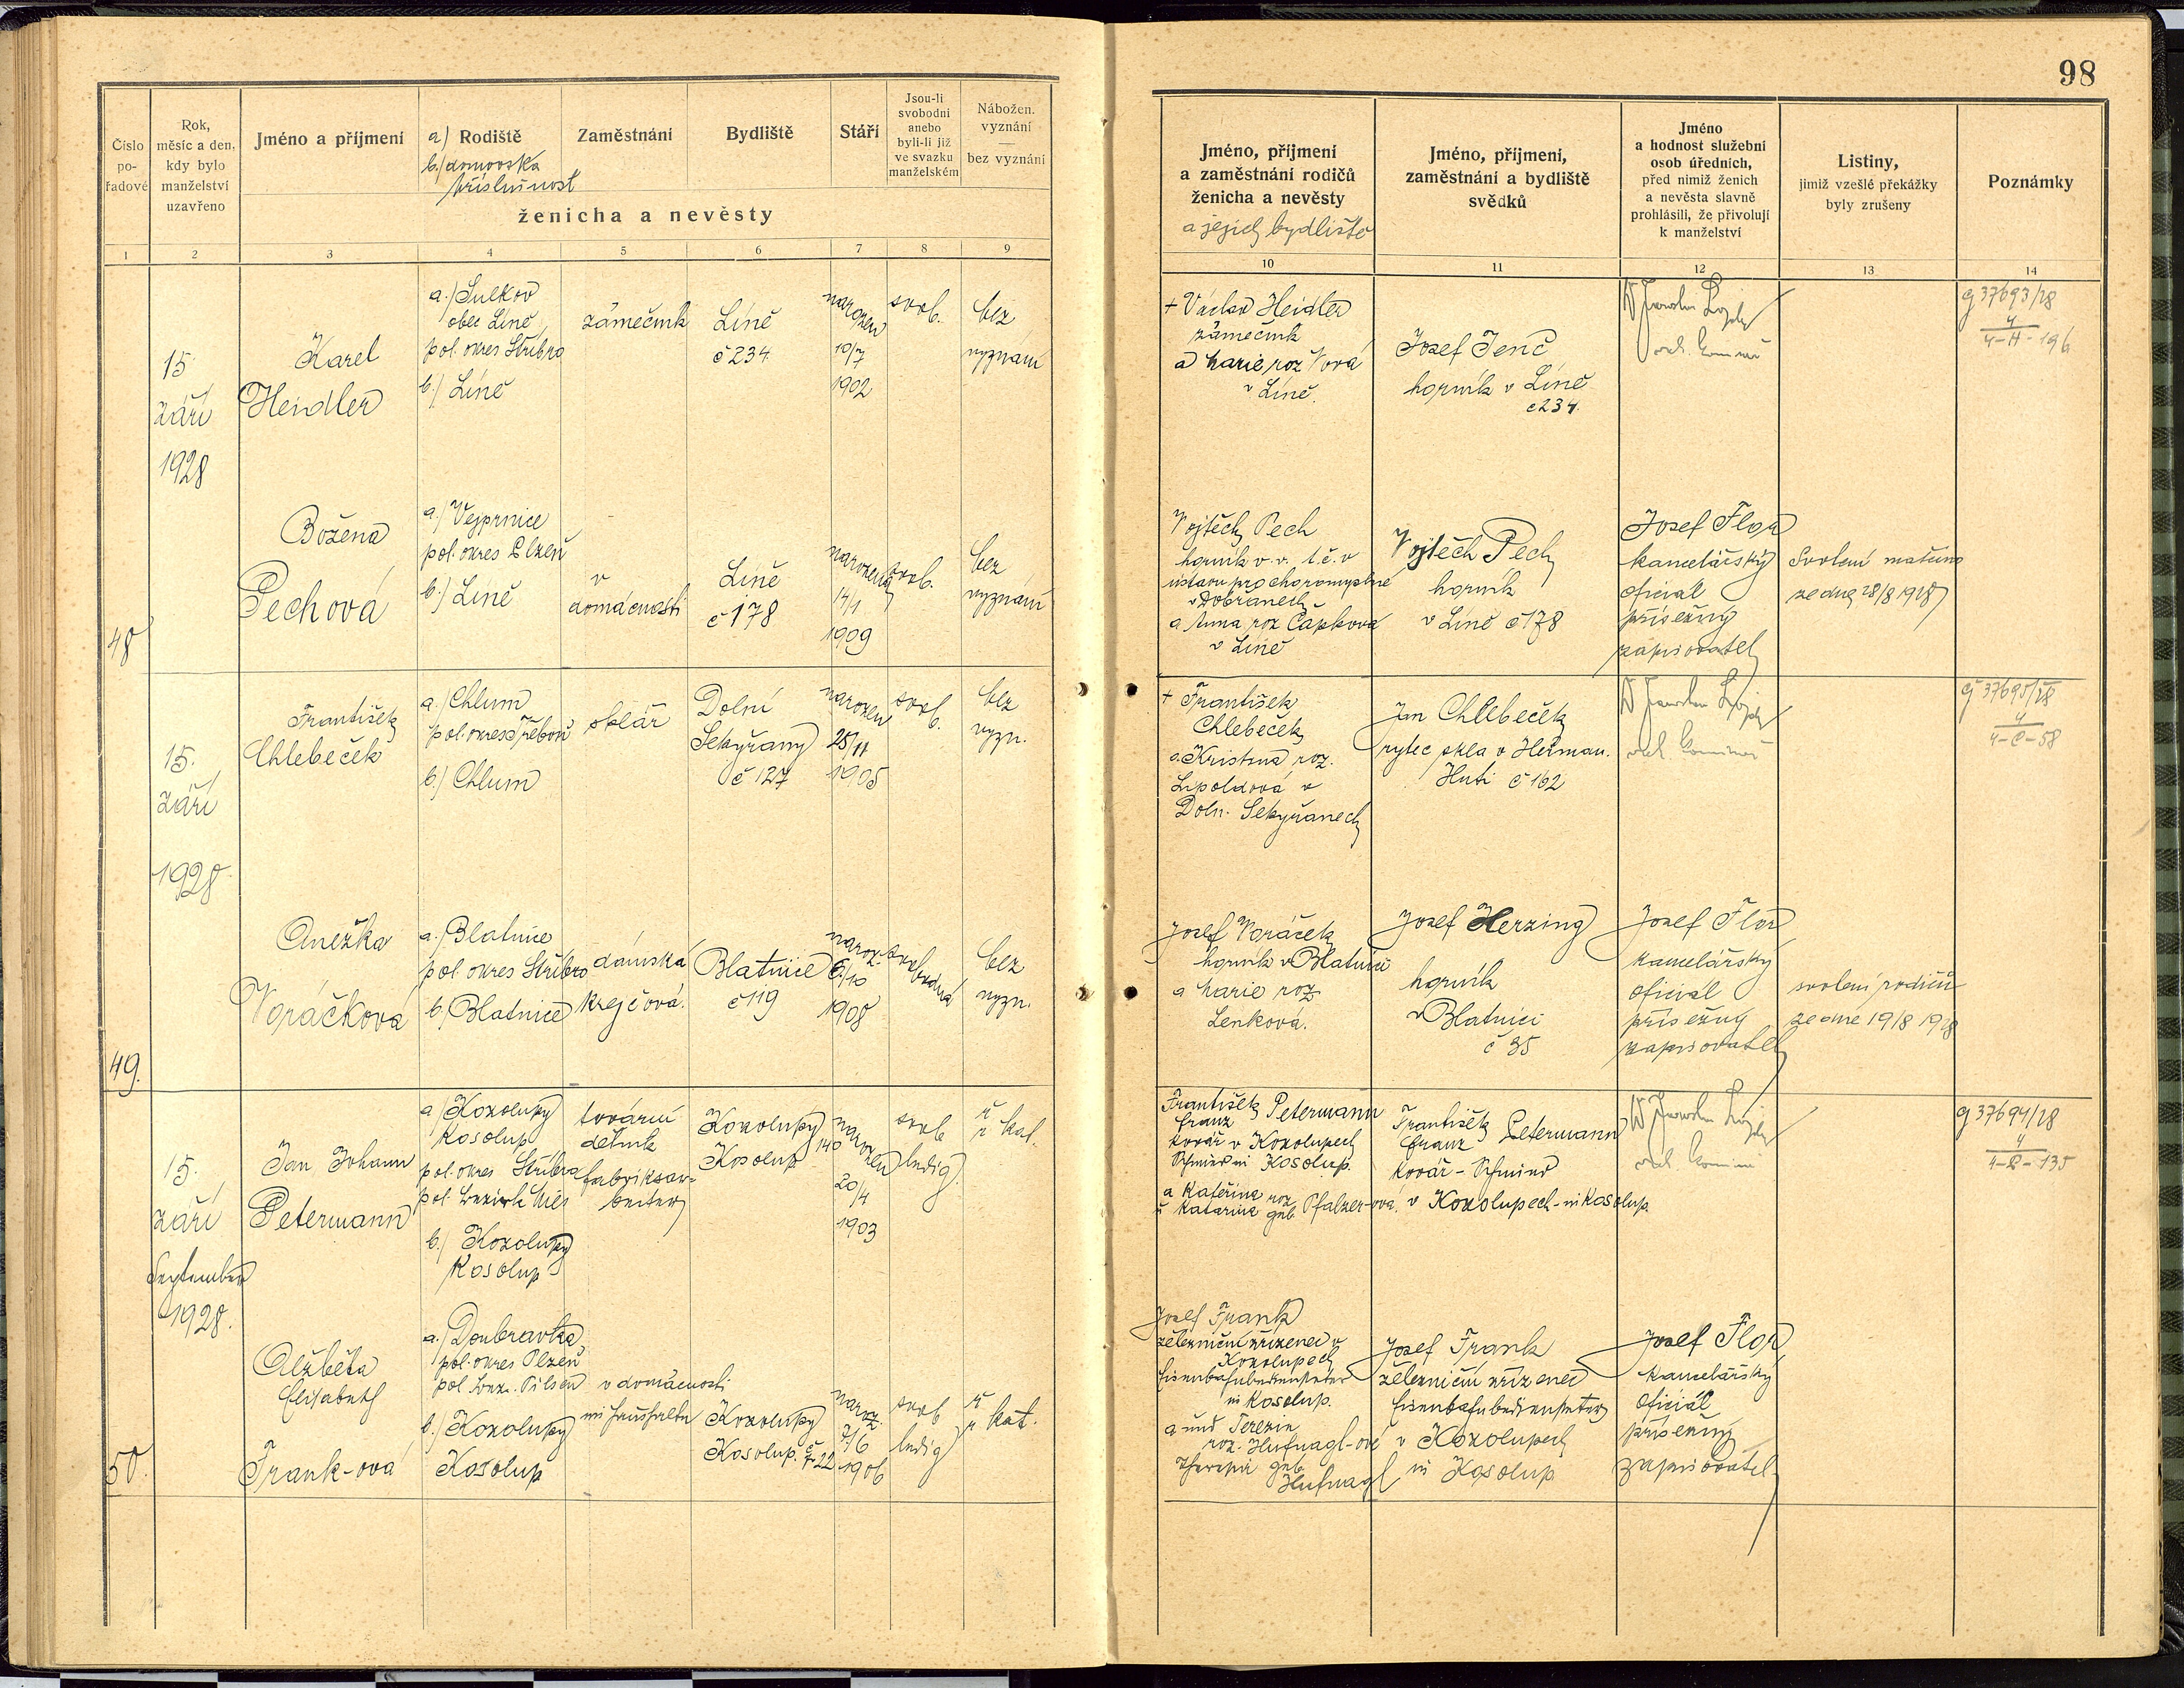 98
Číslo
po-
řadové
Rok,
měsíc a den,
kdy bylo
manželství
uzavřeno
Jméno a příjmení
a) Rodiště
b) domovská
příslušnost
Zaměstnání
Bydliště
Stáří
Jsou-li
svobodni
anebo
byli-li již
ve svazku
manželském
Nábožen.
vyznání
—
bez vyznání
ženicha a nevěsty
Jméno, příjmení
a zaměstnání rodičů
ženicha a nevěsty
a jejich bydliště
Jméno, příjmení,
zaměstnání a bydliště
svědků
Jméno
a hodnost služební
osob úředních,
před nimiž ženich
a nevěsta slavně
prohlásili, že přivolují
k manželství
Listiny,
jimiž vzešlé překážky
byly zrušeny
Poznámky
1 2 3 4 5 6 7 8 9 10 11 12 13 14
15.
září
1928
Karel
Heidler
a.) Sulkov
obec Líně
pol. okres Stříbro
b.) Líně
zámečník
Líně
č 234
narozen
10/7
1902
svob.
bez
vyznání
+ Václav Heidler
zámečník
a Marie roz
v Líně.
Josef Jenč
horník v Líně
č 234.
37693/28
4
4-H-196
48
Božena
Pechová
a.) Vejprnice
pol. okres Plzeň
b.) Líně
v
domácnosti
Líně
č 178
narozena
14/1
1909
svob.
bez
vyznání
Vojtěch Pech
horník v. v. t. č. v
ústavu pro choromyslné
v Dobřanech
a Anna roz Čapková
v Líně
Vojtěch Pech
horník
v Líně č 178
Josef Flor
kancelářský
oficial
přísežný
zapisovatel
Svolení
ze dne 28/8 1928
15.
září
1928
František
Chlebeček
a.) Chlum
pol. okres Třeboň
b.) Chlum
sklář
Dolní
Sekyřany
č 127
narozen
25/11
1905
svob.
bez
vyzn.
+ František
Chlebeček
a. Kristina roz.
Lipoldová v
Doln. Sekyřanech
Jan Chlebeček
rytec skla v Heřman.
Huti č 162
37695/28
4
4-C-58
49.
Anežka
Voráčková
a.) Blatnice
pol. okres Stříbro
b.) Blatnice
dámská
krejčová.
Blatnice
č 119
naroz.
6/10
1908
svobodná
bez
vyzn.
Josef Voráček
horník v Blatnici
a Marie roz
Lenková.
Josef Herzing
horník
v Blatnici
č 35
Josef Flor
kancelářský
oficial
přísežný
zapisovatel
svolení rodičů
ze dne 19/8 1928
15.
září
September
1928.
Jan Johann
Petermann
a) Kozolupy
Kosolup
pol. okres Stříbro
pol. Bezirk Mies
b.) Kozolupy
Kosolup
tovární
dělník
fabriksar-
beiter
Kozolupy
Kosolup 140
narozen
20/4
1903
svob
ledig
ř
r kat.
František Petermann
Franz
kovář v Kozolupech
Schmied in Kosolup.
a Kateřina roz
u Katarina geb Pfalzer-ová.
František Petermann
Franz
kovář - Schmied
v Kozolupech - in Kosolup.
37694/28
4
135
50.
Alžběta
Elisabeth
Frank-ová
a.) Doubravka
pol. okres Plzeň
pol. Bezr. Pilsen
b.) Kozolupy
Kosolup
v domácnosti
im Haushalte
Kozolupy
Kosolup. č 22
naroz.
7/6
1906
svob
ledig
ř
r kat.
Josef Frank
železniční zřízenec v
Kozolupech
Eisenbahnbediensteter
in Kosolup.
a und Terezie
roz. Hufnagl-ové
Theresia geb
Hufnagl
Josef Frank
železniční zřízenec
Eisenbahnbediensteter
v Kozolupech
in Kosolup
Josef Flor
kancelářský
oficiál
přísežný
zapisovatel